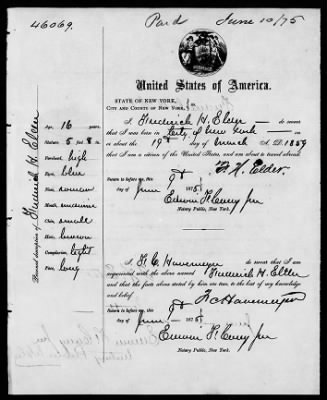 46069.
Pard June 10/75
United States of America.
STATE OF NEW YORK,
CITY AND COUNTY OF NEW YORK.
I, Frederick H. Elder do swear
that I was born in City of New York on
or about the 19th day of March A. D. 1859
that I am a citizen of the United States, and am about to travel abroad.
Sworn to before me, this 9th
day of June 1875
F. H. Elder.
Edwin F. Corey Jr
Notary Public, New York.
I, F. C. Havemeyer do swear that I am
acquainted with the above named Frederick H. Elder
and that the facts above stated by him are true, to the best of my knowledge
and belief.
Sworn to before me, this 9th
day of June 1875
F C Havemeyer
Edwin F. Corey Jr
Notary Public, New York.
Personal description of Frederick H. Elder
Age, 16 years.
Stature, 5 feet
Forehead, high
Eyes, blue
Nose, roman
Mouth, medium
Chin, small
Hair, brown
Complexion, light
Face, long